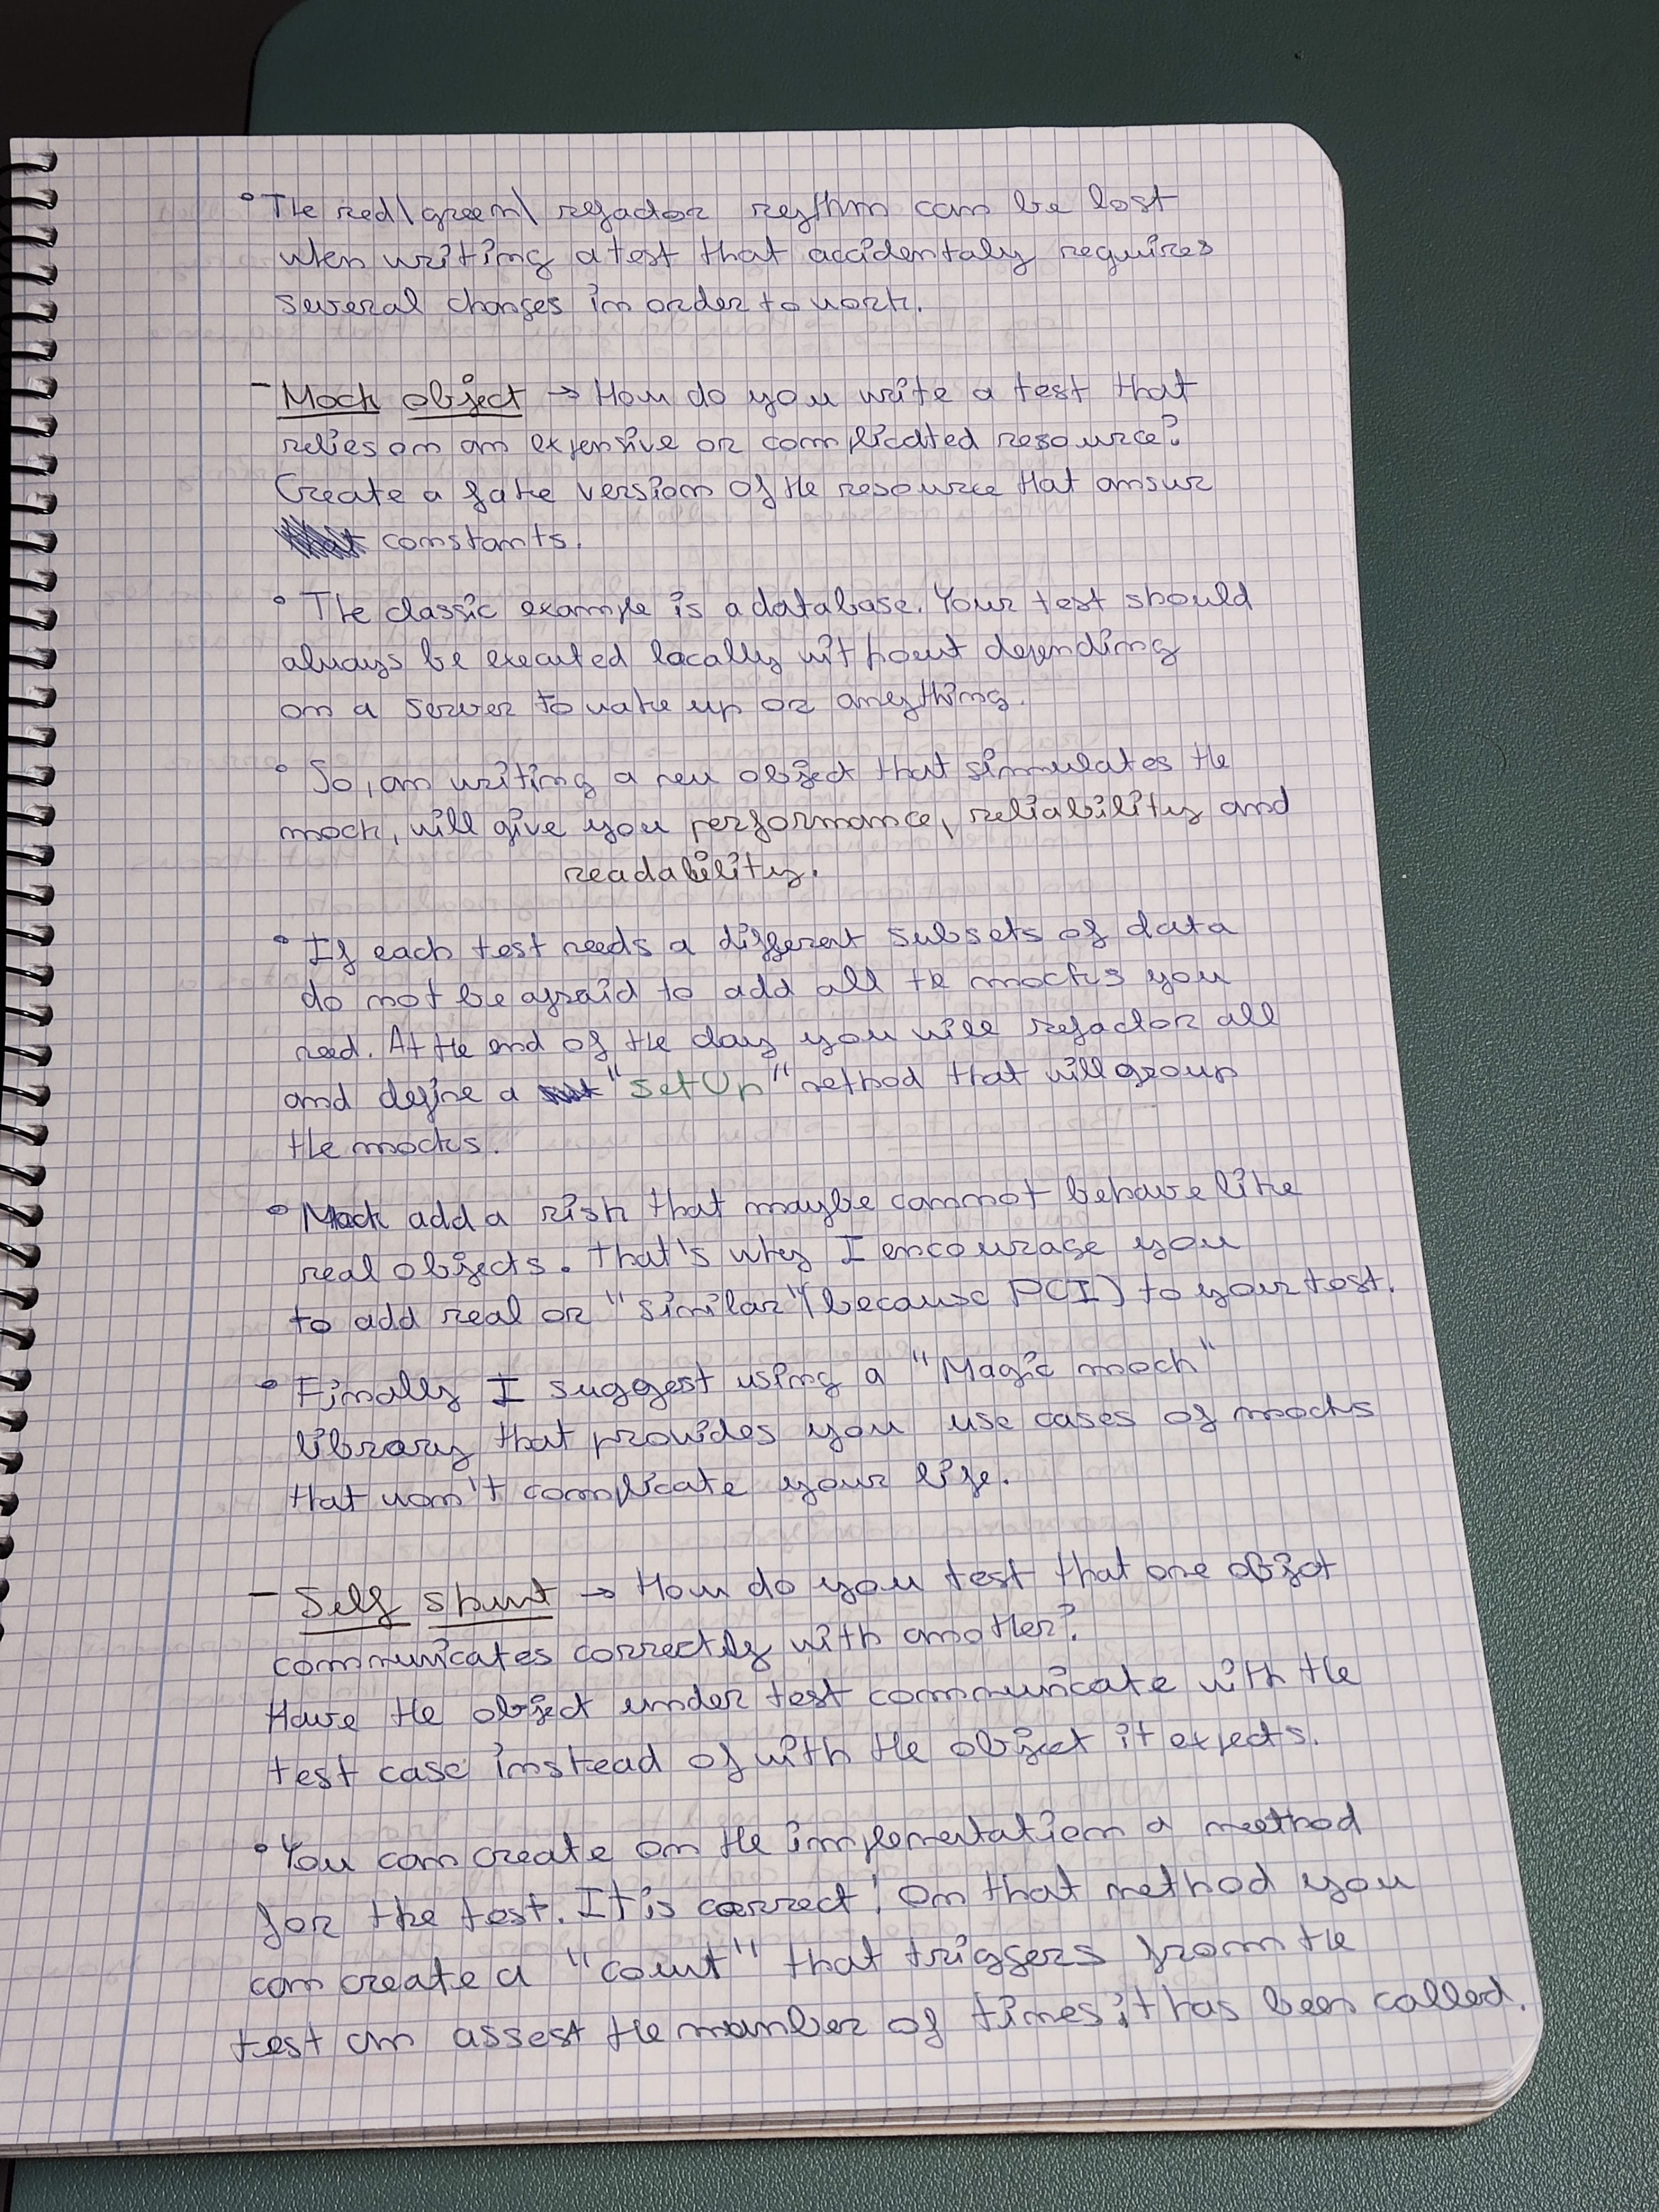 ° The red\green\ refactor rythm can be lost
when writing a test that accidentaly requires
several changes in order to work.
- Mock object → How do you write a test that
relies on an expensive or complicated resource?
Create a fake version of the resource that ansur
constants.
° The classic example is a database. Your test should
always be executed locally without depending
on a server to wake up or anything.
° So, an writing a new object that simulates the
mock, will give you performance, reliability and
readability.
° If each test needs a different subsets of data
do not be afraid to add all te mocks you
need. At the end of the day you will refactor all
and define a "setUp" method that will group
the mocks.
° Mock add a risk that maybe cannot behave like
real objects. That's why I encourage you
to add real or "similar" (because PCI) to your test.
° Finally I suggest using a "Magic mock"
library that provides you use cases of mocks
that won't complicate your life.
- Self shunt → How do you test that one object
communicates correctly with another?
Have the object under test communicate with the
test case instead of with the object it expects.
° You can create on the implementation a method
for the test. It is correct! On that method you
can create a "count" that triggers from the
test an assest the number of times it has been called.